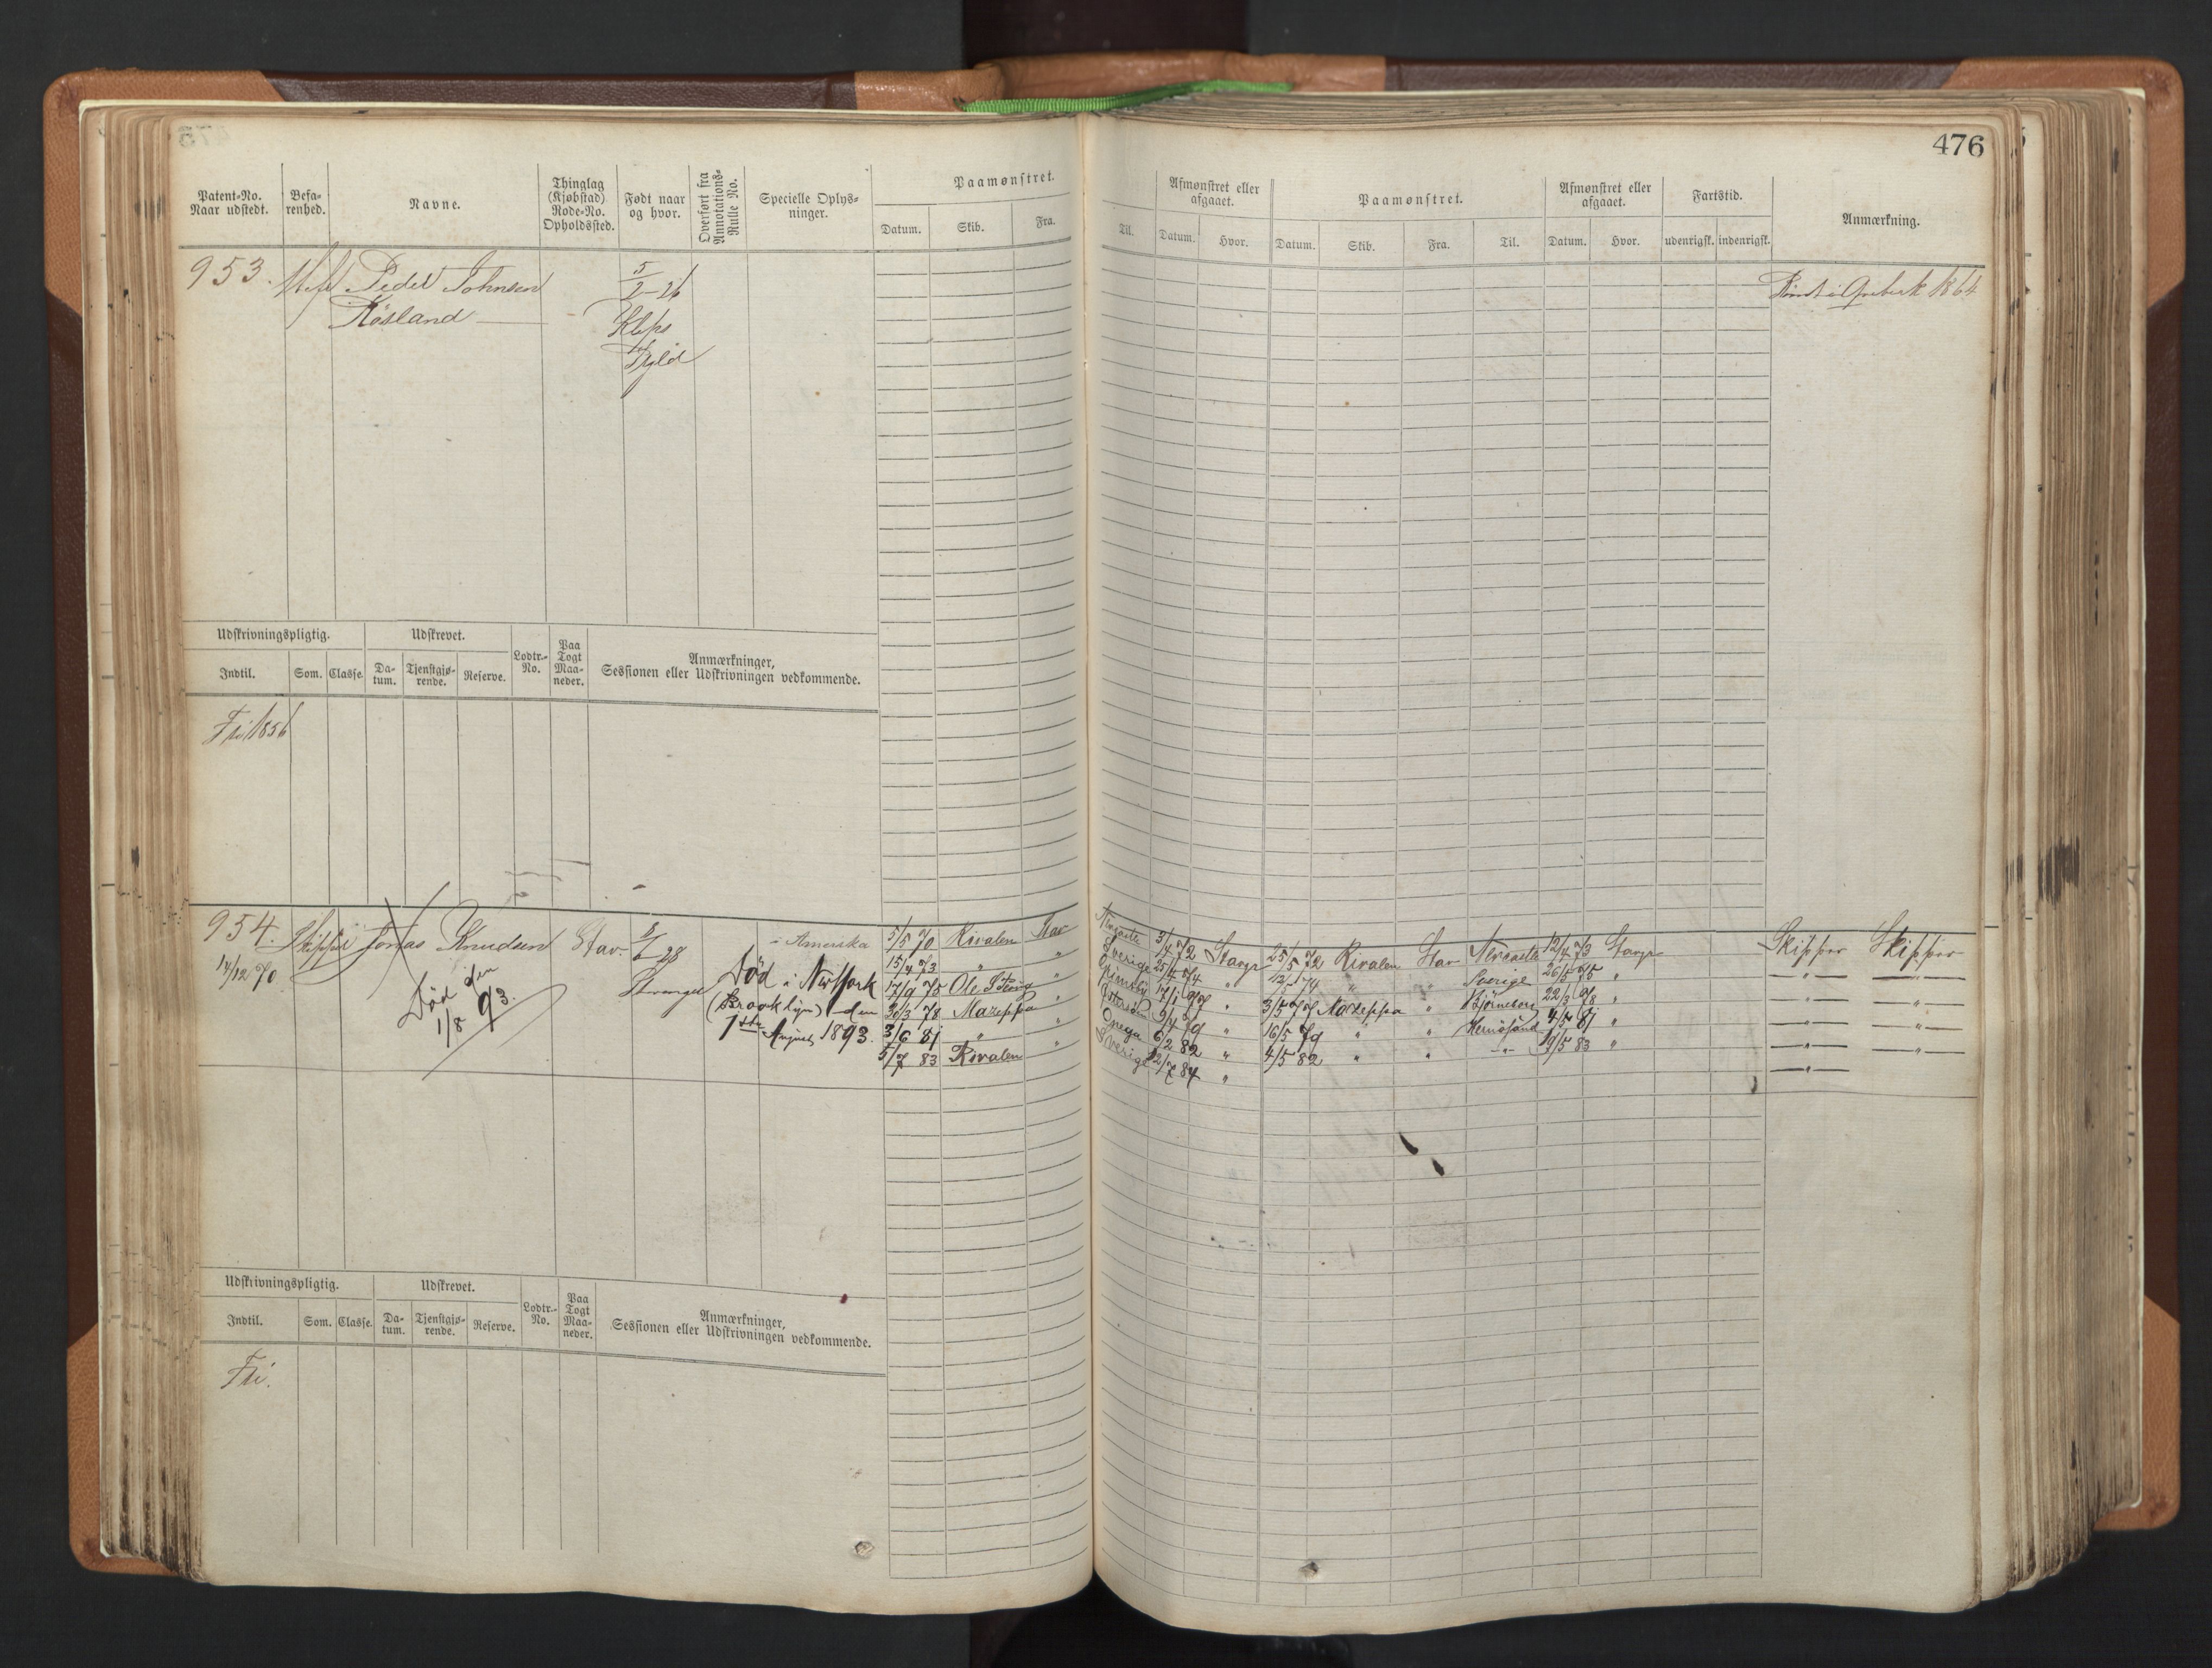 476
Patent-No. Naar udstedt.
Befa-renhed.
Navne.
Thinglag (Kjøbstad) Rode-No. Opholdssted.
Født naar og hvor.
Overført fra Annotations-Rulle No.
Specielle Oplys-ninger.
Paamønstret.
Datum. Skib. Fra. Til.
Afmønstret eller afgaaet.
Datum. Hvor.
Paamønstret.
Datum. Skib. Fra. Til.
Afmønstret eller afgaaet.
Datum. Hvor.
Fartstid.
udenrigsk. indenrigsk.
Anmærkning.
953. Peder Johnsen 5/2-26 1864
Røsland Klep
Udskrivningspligtig. Udskrevet. Lodtr.-No. Paa Togt Maa-neder. Anmærkninger, Sessionen eller Udskrivningen vedkommende.
Indtil. Som. Classe. Da-tum. Tjenstgjø-rende. Reserve.
Fri 1856
954. Skipper Jonas Knudsen Stav. 28 i Amerika 5/5 70 Rivalen Stav Newcastle 3/4 72 Stavgr 25/5 72 Rivalen Stav Newcastle 12/4 73 Stavgr Skipper Skipper
14/12 70. Stavanger 15/4 73 " " Sverige 25/4 74 " 12/5 74 " " Sverige 26/5 75 " —"— —"—
Død den 1/8 93. Død i NewYork 17/9 75 Ole " 17/1 77 " 3/5 77 Mazeppa " Bjørneborg 22/3 78 " —"— —"—
(Brooklyn) den 30/3 78 Mazeppa " 9/4 79 " 16/5 79 " " Hernøsand 4/5 81 " —"— —"—
1ste August 1893. 3/6 81 " " Onega 6/2 82 " 4/5 82 " " —"— 19/5 83 " —"— —"—
5/7 83 Rivalen " Sverige 12/7 84 " —"—
Udskrivningspligtig. Udskrevet. Lodtr.-No. Paa Togt Maa-neder. Anmærkninger, Sessionen eller Udskrivningen vedkommende.
Indtil. Som. Classe. Da-tum. Tjenstgjø-rende. Reserve.
Fri.